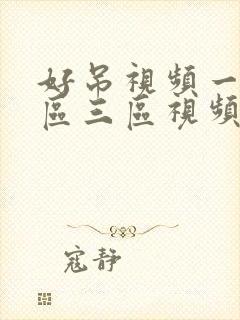 好吊視頻一
區三區視頻
寇靜